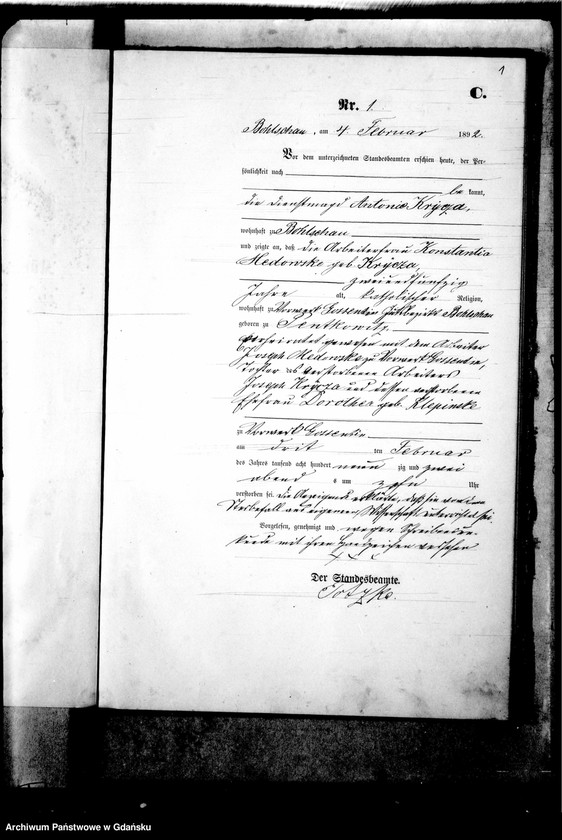 1
C.
Nr. 1.
Bohlschau, am 4. Februar 1892.
Vor dem unterzeichneten Standesbeamten erschien heute, der Per-
sönlichkeit nach
be kannt,
die Dienstmagd Antonie Krÿcza,
wohnhaft zu Bohlschau
und zeigte an, daß die Arbeiterfrau Konstantia
Medowske geb. Krÿcza,
zweiundfünfzig
Jahre alt, katholischer Religion,
wohnhaft zu Vorwerk Gossentin Gutsbezirk Bohlschau
geboren zu Sentkowitz
verheirathet gewesen mit dem Arbeiter
Joseph Medowske zu Vorwerk Gossentin,
Tochter des verstorbenen Arbeiters
Joseph Krÿcza und dessen verstorbene
Ehefrau Dorothea geb. Klepinske
zu Vorwerk Gossentin
am drit ten Februar
des Jahres tausend acht hundert neun zig und zwei
abend s um zehn Uhr
verstorben sei, die Anzeigende erklärte, daß sie von dem
Sterbefall aus eigener Wissenschaft unterrichtet sei.
Vorgelesen, genehmigt und wegen Schreibensun-
kunde mit ihren Handzeichen versehen
x x x
Der Standesbeamte.
Archiwum Państwowe w Gdańsku